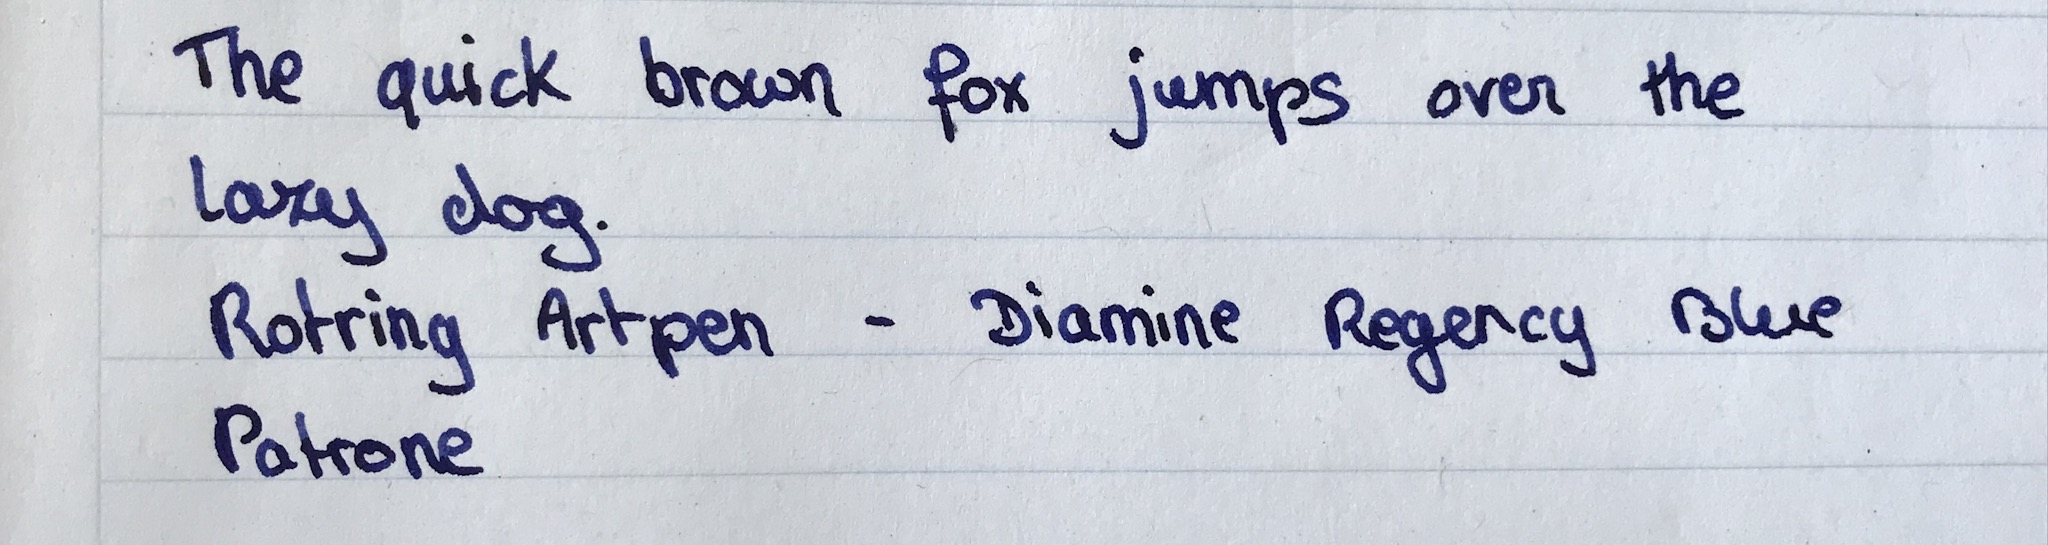 The quick brown fox jumps over the
lazy dog.
Rotring Artpen - Diamine Regency Blue
Patrone